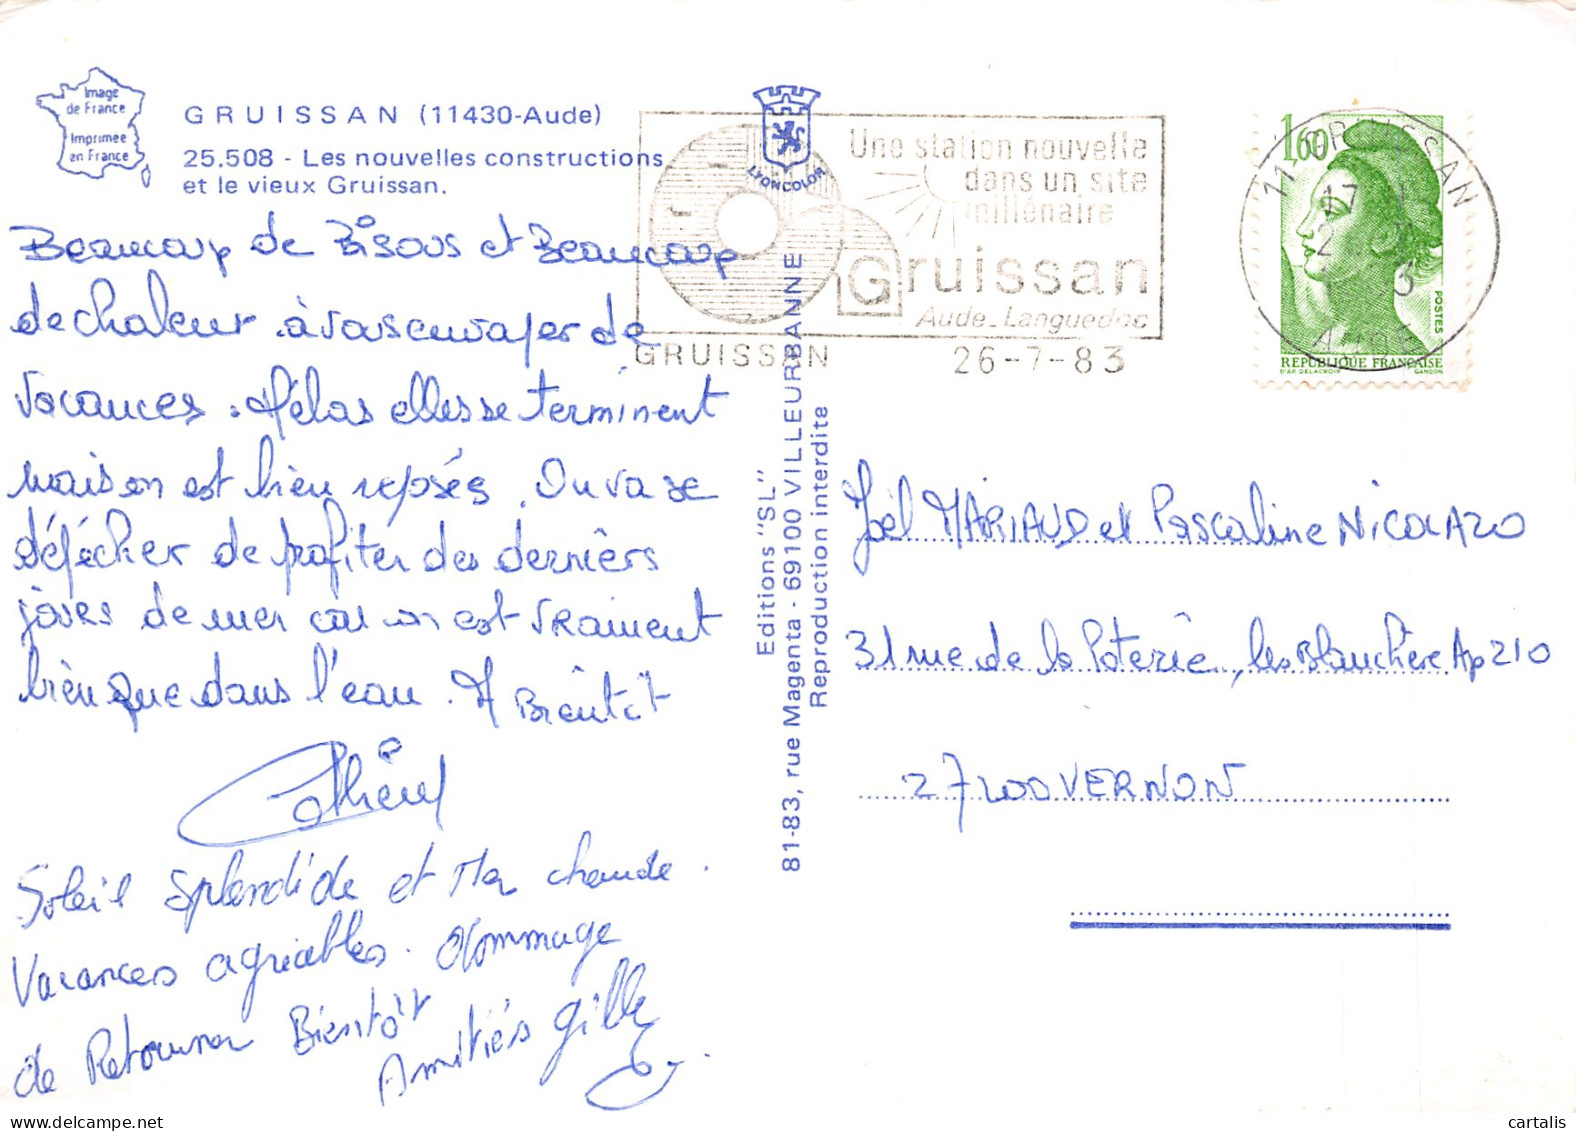 Image
de France
Imprimée
en France
GRUISSAN (11430-Aude)
25.508 - Les nouvelles constructions
et le vieux Gruissan.
Beaucoup de Bisous et Beaucoup
de chaleur. à vous envoyer de
vacances. Hélas elles se terminent
mais on est bien reposés. On va se
dépécher de profiter des derniers
jours de mer car on est vraiment
bien que dans l'eau. A Bientôt
Soleil splendide et Mer chaude.
Vacances agréables. Dommage
de Retourner Bientôt
Amitiés Gilles
LYONCOLOR
Editions "SL"
81-83, rue Magenta - 69100 VILLEURBANNE
Reproduction interdite
Une station nouvelle
dans un site
millénaire
Gruissan
Aude-Languedoc
GRUISSAN 26-7-83
11 GRUISSAN
17
AUDE
1,60
POSTES
REPUBLIQUE FRANÇAISE
D'AP. DELACROIX GANDON
Joël MARIAUD et Pascaline NICOLAZO
31 rue de la Poterie, les Blanchère Ap 210
27200 VERNON
cartalis